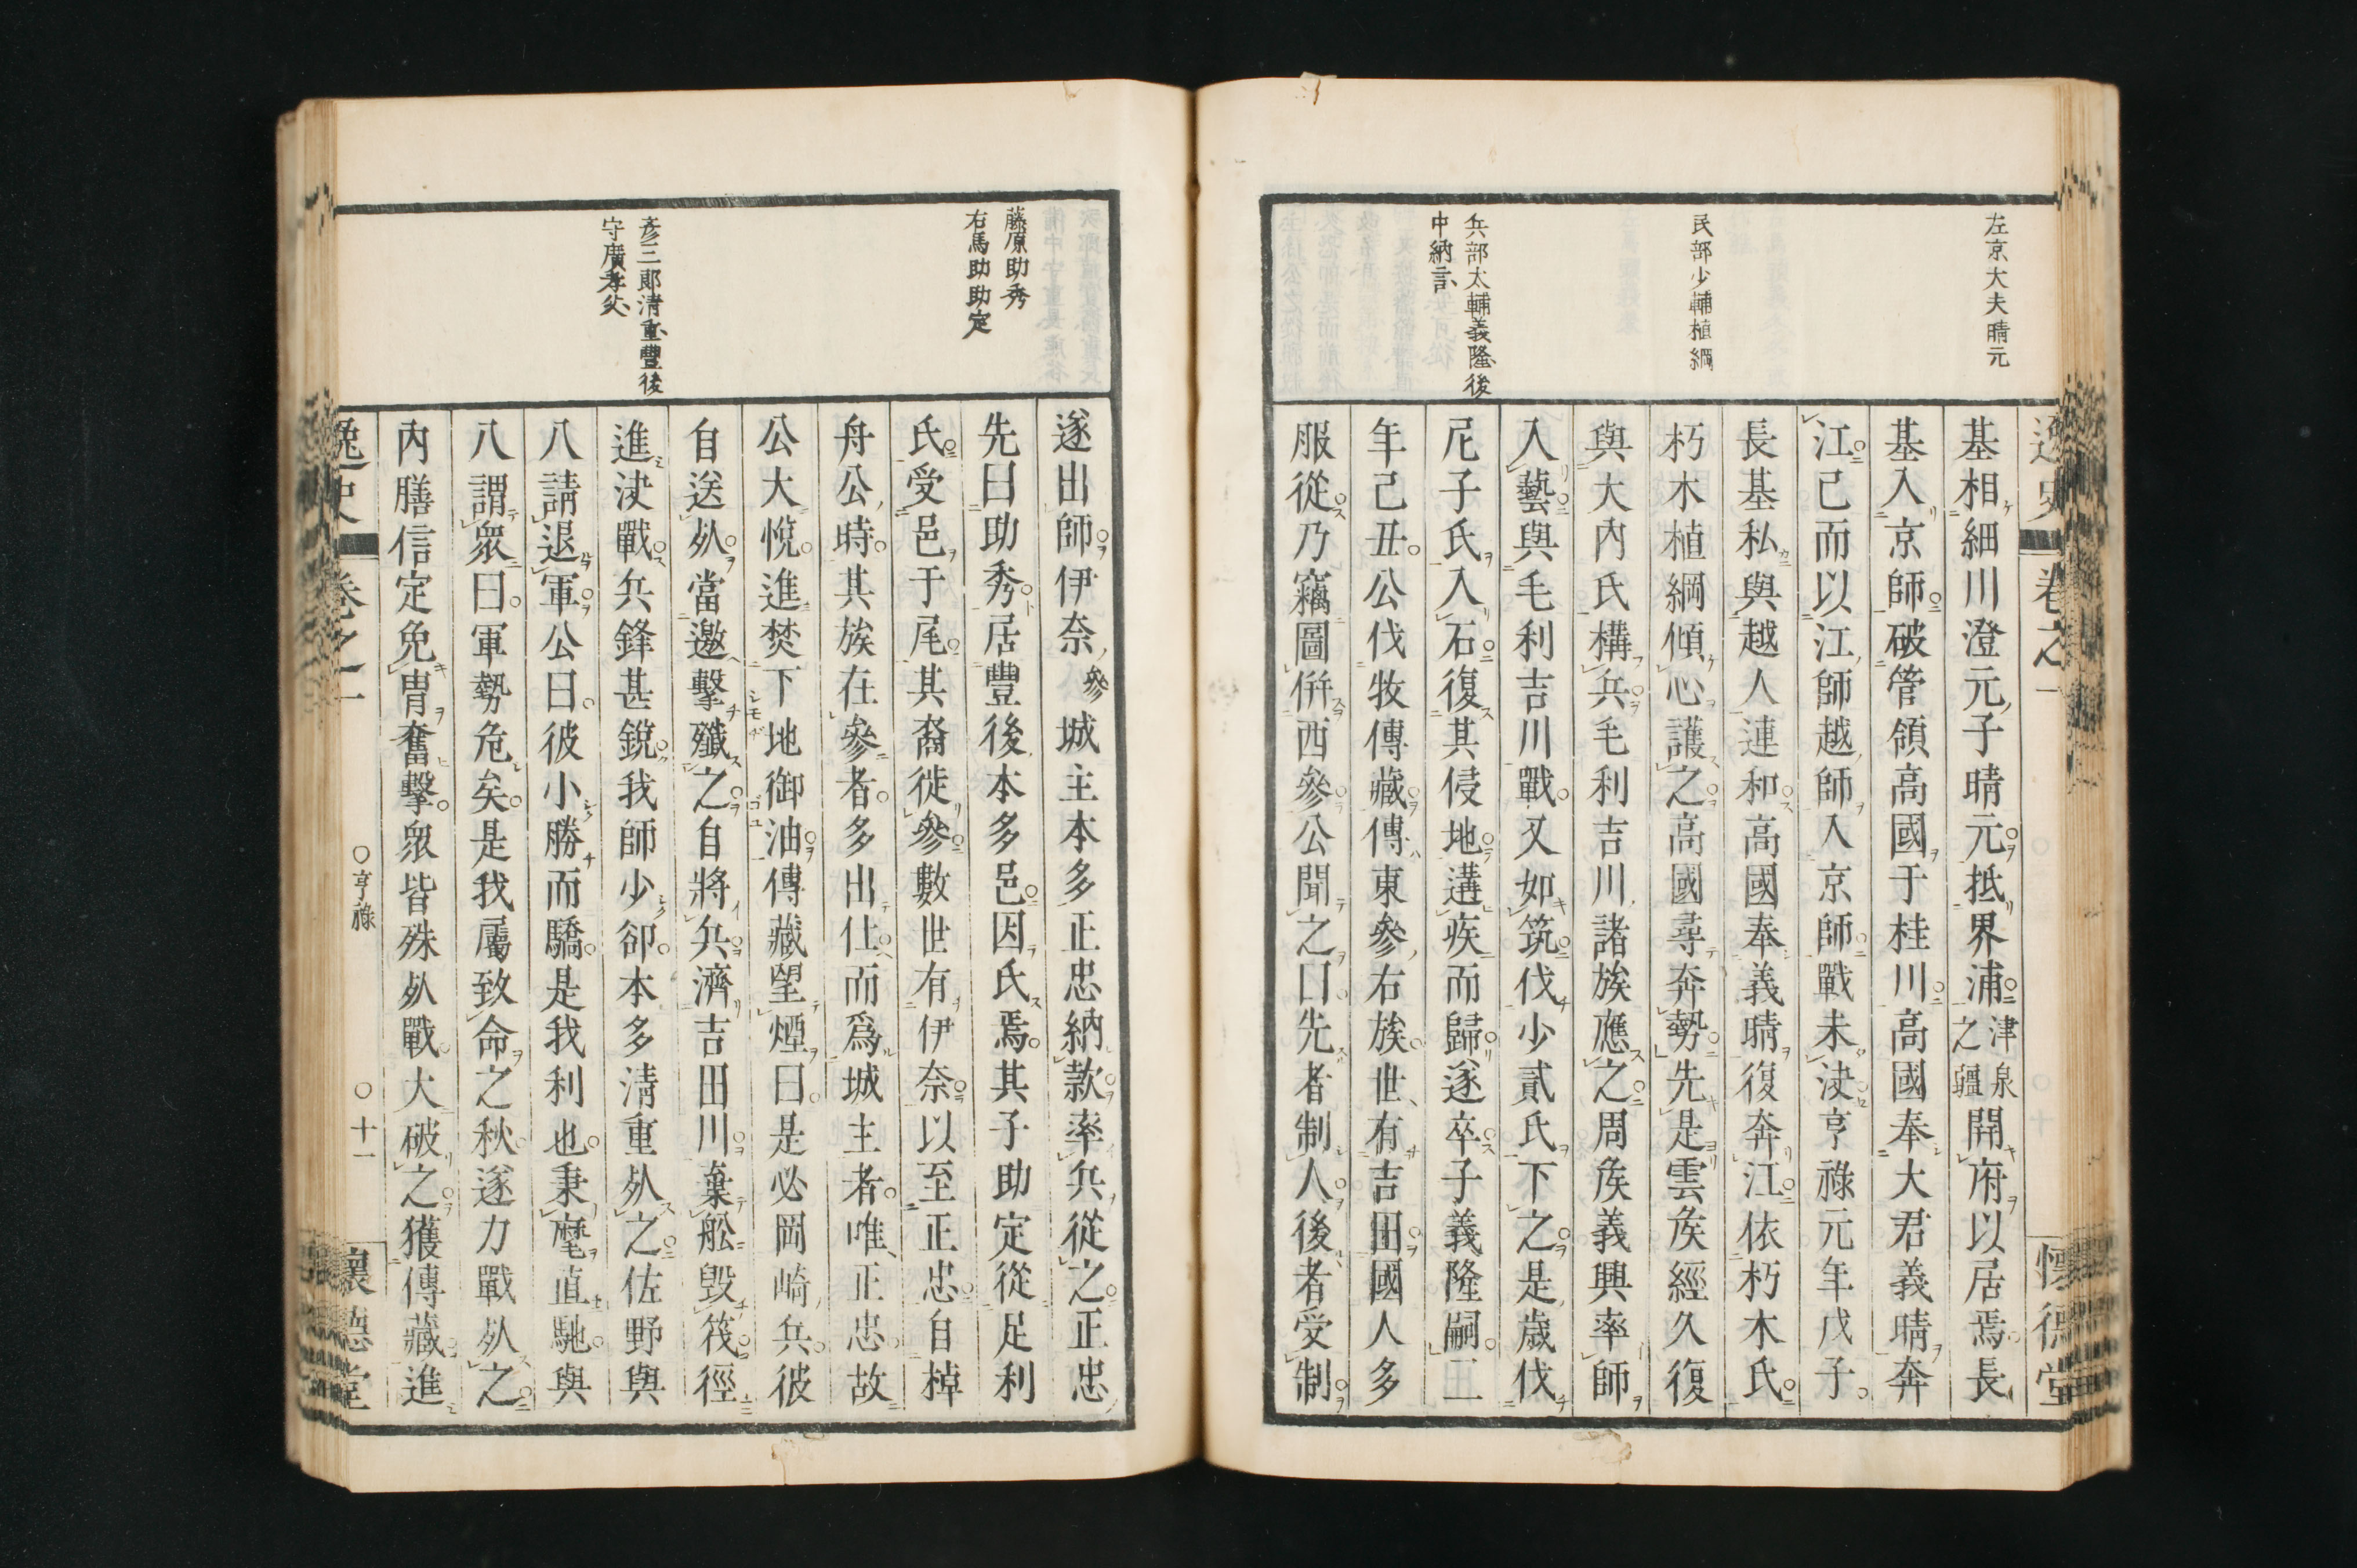 左京大夫晴元
民部少輔植綱
兵部太輔義隆後
中納言
逸史
卷之一
懷德堂
基相細川澄元子晴元抵界浦津泉之疆開府以居焉長
基入京師破管領高國于桂川高國奉大君義晴奔
江已而以江師越師入京師戰未決亨祿元年戊子
長基私與越人連和高國奉義晴復奔江依朽木氏
朽木植綱傾心護之高國尋奔勢先是雲矦經久復
與大內氏構兵毛利吉川諸族應之周矦義興率師
入藝與毛利吉川戰又如筑伐少貳氏下之是歲伐
尼子氏入石復其侵地遘疾而歸遂卒子義隆嗣二
年己丑公伐牧傳藏傳東參右族世有吉田國人多
服從乃竊圖併西參公聞之曰先者制人後者受制
藤原助秀
右馬助助定
彥三郎清重豐後
守廣孝父
遂出師伊奈參城主本多正忠納款率兵從之正忠
先曰助秀居豐後本多邑因氏焉其子助定從足利
氏受邑于尾其裔徙參數世有伊奈以至正忠自棹
舟公時其族在參者多出仕而爲城主者唯正忠故
公大悅進焚下地御油傳藏望煙曰是必岡崎兵彼
自送死當邀擊殲之自將兵濟吉田川棄舩毀筏徑
進決戰兵鋒甚銳我師少卻本多淸重死之佐野與
八請退軍公曰彼小勝而驕是我利也秉麾直馳與
八謂衆曰軍勢危矣是我屬致命之秋遂力戰死之
內膳信定免冑奮擊衆皆殊死戰大破之獲傳藏進
逸史
卷之一
○亨祿
○十一
懷德堂